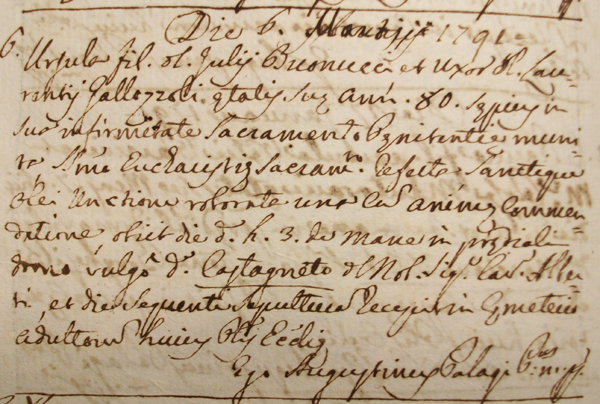 Die 6. Martij 1791
6. Ursula fil. ol. Julij Bonucci et uxor ol. Lau-
rentij Gallozzoli ętatis suę ann. 80. sępius in
sua infirmitate Sacramento Pęnitentię muni
ta, SSmo Eucharistię Sacramto. refecta Sanctique
olei Unctione roborata una cum animę Commen
datione, obiit die da. h. 3. de mane in prędiali
domo vulgo da. Castagneto del Nob. Sigr. Cav. Alber
ti, et die sequenti sepulturam recepit in Cęmeterio
adultorum huius Eccłię
Ego Augustinus Palagi